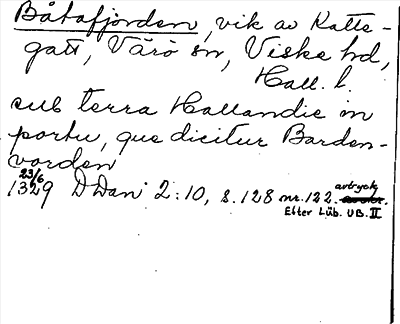 Båtafjorden, vik av Katte-
gatt, Värö sn, Viske hd,
Hall. l.
sub terra Hallandie in
portu, que dicitur Barden-
vorden
23/6
1329 DDan 2:10, s. 128 nr. 122. avtryck
Efter Lüb. UB. II